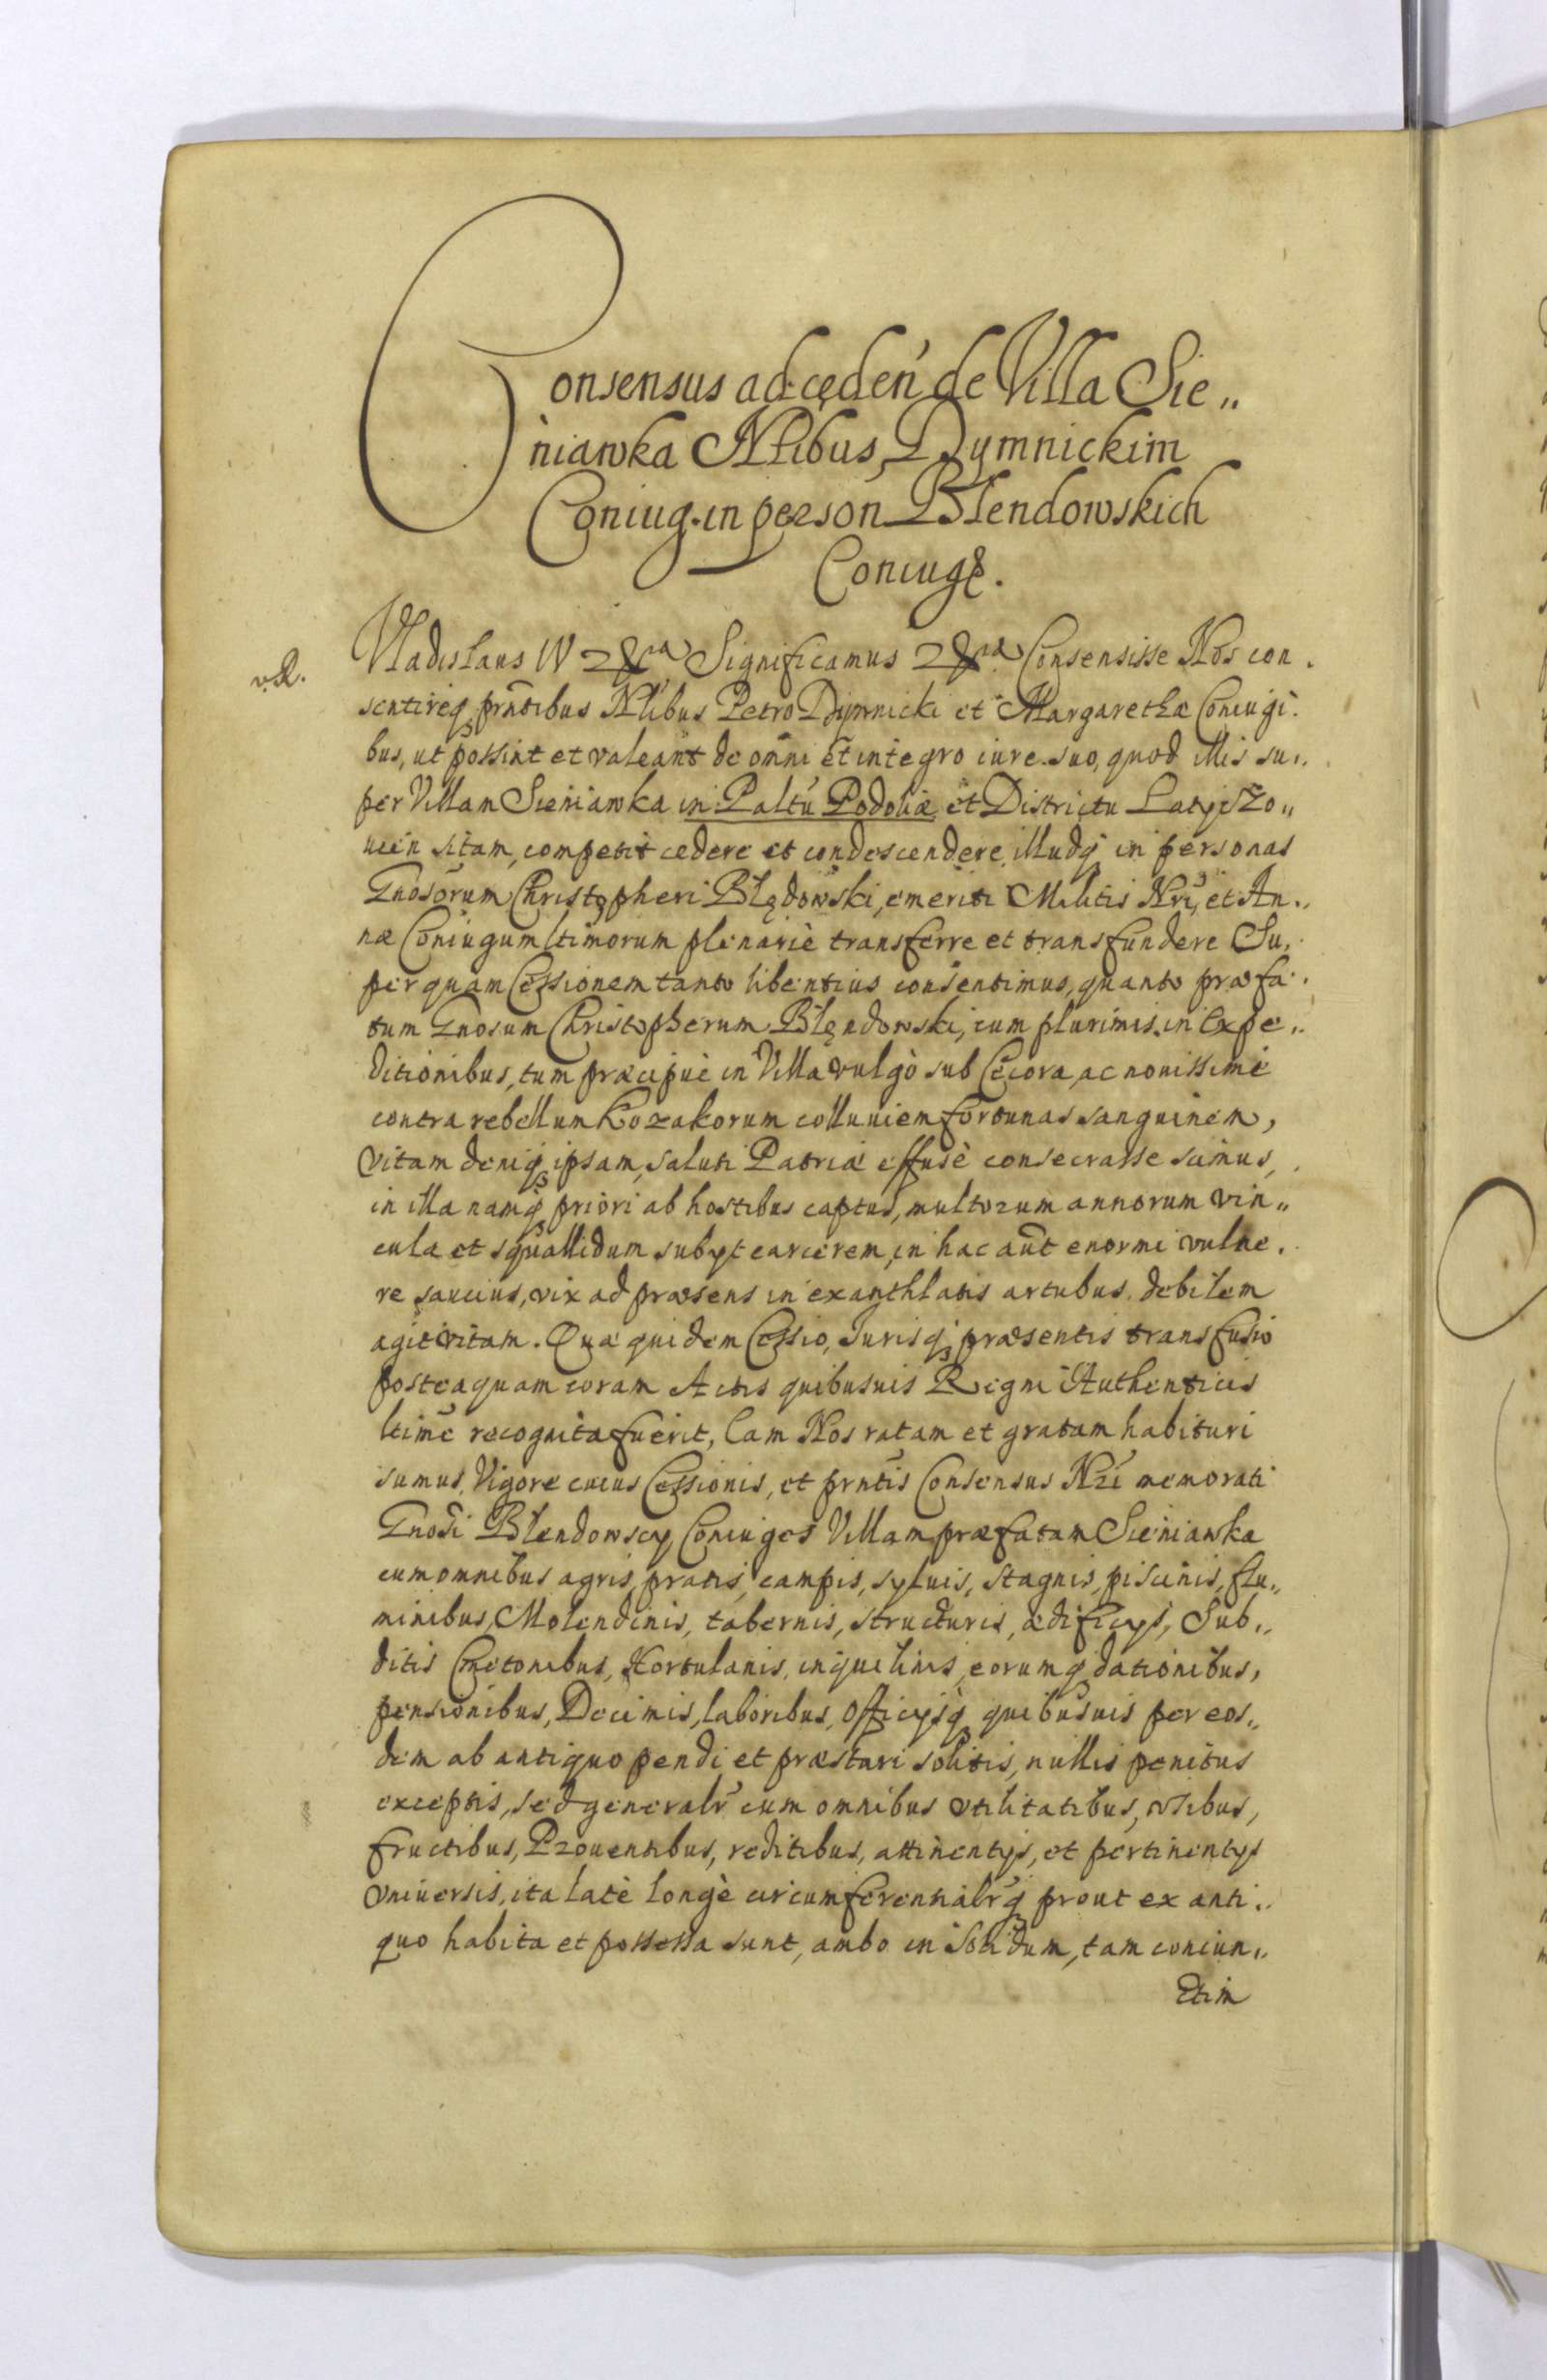 Consensus ad cęden̄ de Villa Sie„
niawka Nlibus Dymnickim
Coniug. in person Blendowskich
Coniug.
v.R.
Vladislaus IV &ca Significamus &ca Consensisse Nos con.
sentireq3 prñtibus Nlibus Petro Dymnicki et Margarethæ Coniugi.
bus, ut possint et valeant de omni et integro iure suo, quod illis su„
per Villam Sieniawka in Paltu Podoliæ et Districtu Latyczo„
uien sitam, competit cedere et condescendere, illudq3 in personas
Gnosorum Christopheri Błędowski, emeriti Militis Nri, et An„
næ Coniugum ltimorum plenariè transferre et transfundere Su„
per quam Cessionem tanto libentius consentimus, quanto præfa.
tum Gnosum Christopherum Błęndowski, cum plurimis in Expe„
ditionibus, tum præcipuè in Villa vulgò sub Cecora, ac nouissimè
contra rebellum Kozakorum colluuiem fortunas sanguinem,
vitam deniq3 ipsam, saluti Patriæ effusè consecrasse scimus,
in illa namq3 priori ab hostibus captus, multorum annorum vin„
cula et squallidum subyt carcerem, in hac aut enormi vulne.
re saucius, vix ad præsens in exanthlatis artubus debilem
agit vitam. Quæ quidem Cessio, Jurisq3 præsentis transfusio
posteaquam coram Actis quibusuis Regni Authenticis
ltimè recognita fuerit, Eam Nos ratam et gratam habituri
sumus, Vigore cuius Cessionis, et prñtis Consensus Nri memorati
Gnosi Blendowscy Coniuges Villam præfatam Sieniawka
cum omnibus agris, pratis, campis, syluis, stagnis, piscinis, flu„
minibus, Molendinis, tabernis, structuris, ædificys, Sub„
ditis Cmetonibus, Hortulanis, inquilinis, eorumq3 dationibus,
pensionibus, Decimis, laboribus, officysq3 quibusuis per eos„
dem ab antiquo pendi et præstari solitis, nullis penitus
exceptis, sed generalr cum omnibus vtilitatibus, vsibus,
fructibus, Prouentibus, reditibus, attinentys, et pertinentys
vniuersis, ita latè longè circumferentialrq3 prout ex anti„
quo habita et possessa sunt, ambo in solidum, tam coniun„
ctim